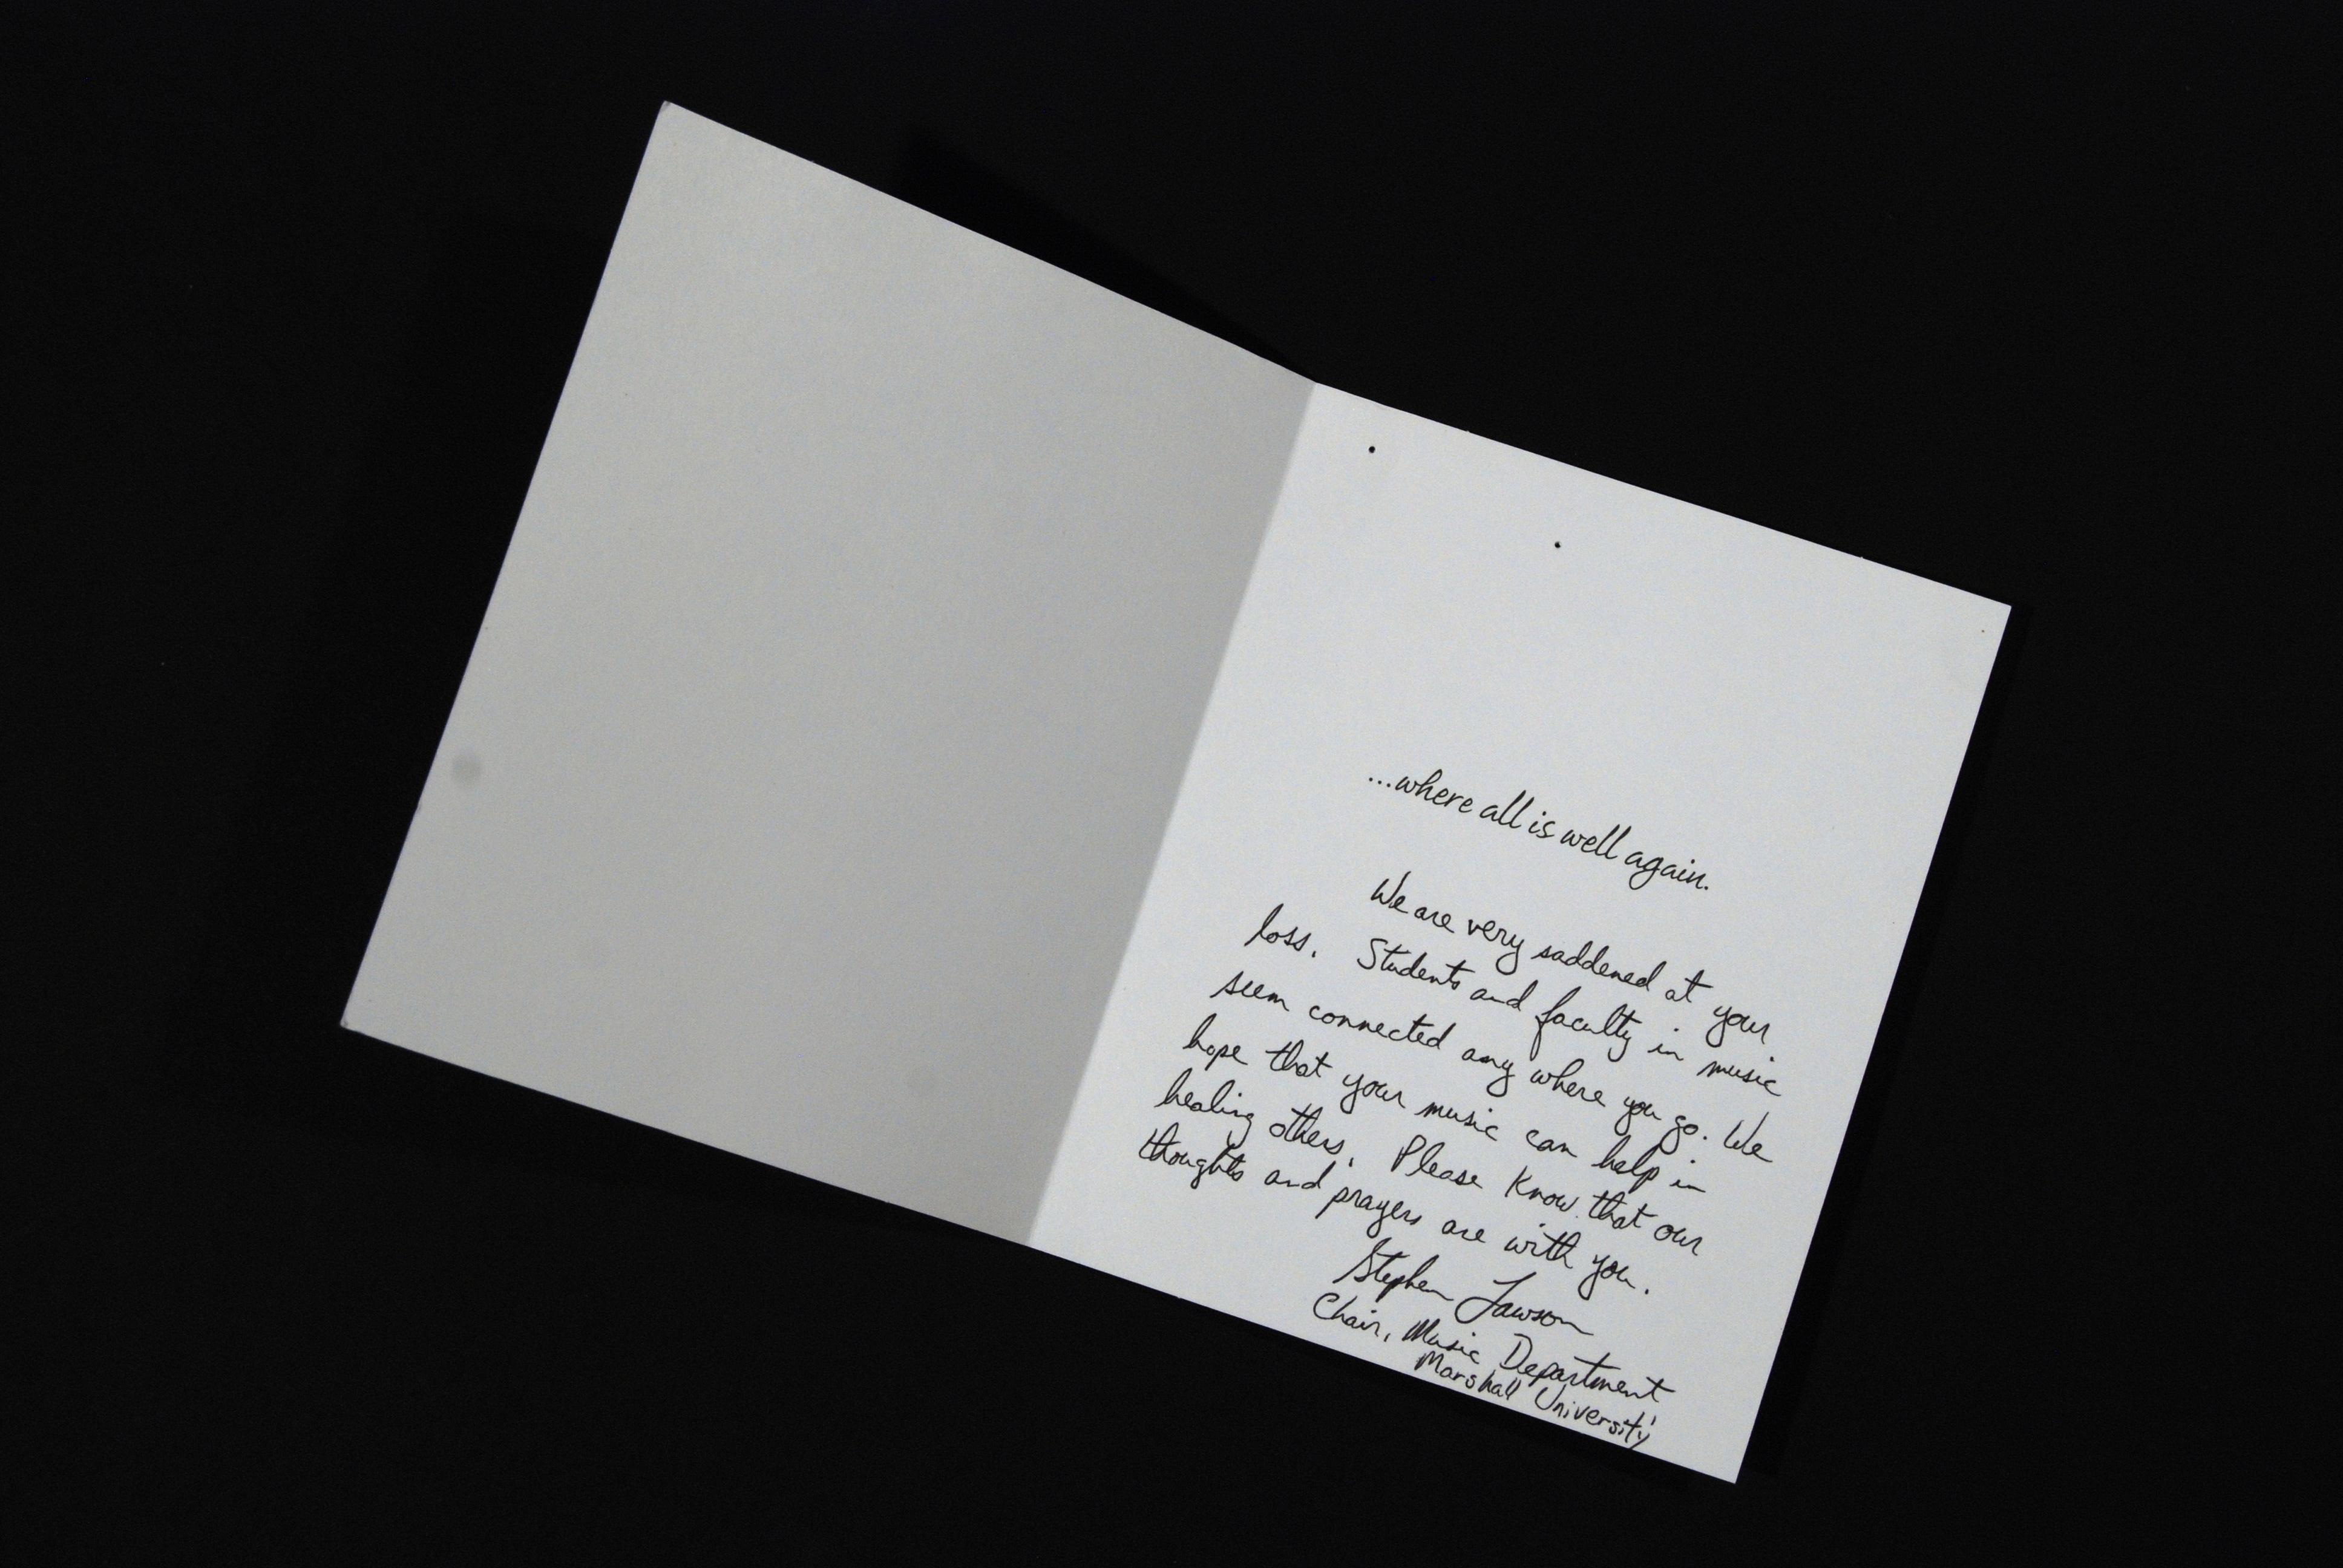 ...where all is well again.
We are very saddened at your
loss. Students and faculty in music
seem connected any where you go. We
hope that your music can help in
healing others. Please know that our
thoughts and prayers are with you.
Stephen Lawson
Chair, Music Department
Marshall University